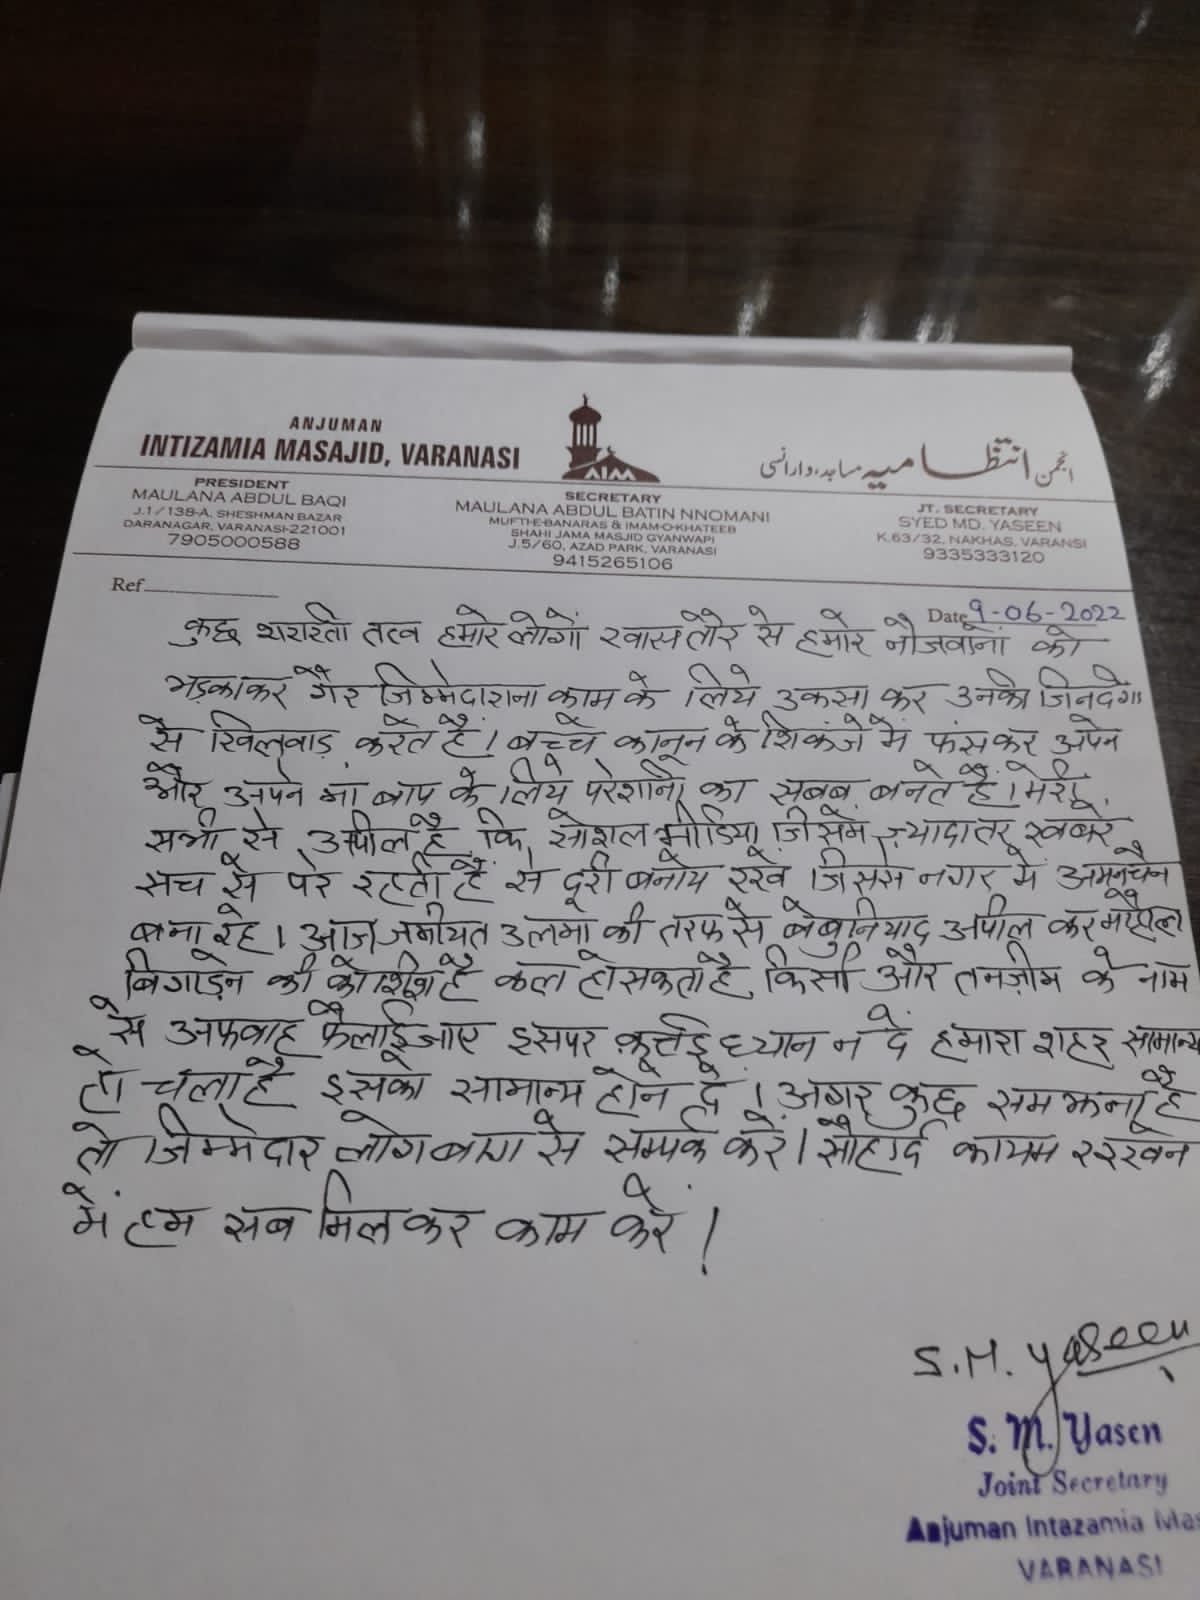 ANJUMAN
INTIZAMIA MASAJID, VARANASI
AIM
انجمن انتظامیہ مساجد، وارانسی
PRESIDENT
MAULANA ABDUL BAQI
J.1/138-A, SHESHMAN BAZAR
DARANAGAR, VARANASI-221001
7905000588
SECRETARY
MAULANA ABDUL BATIN NNOMANI
MUFTHE-BANARAS & IMAM-O-KHATEEB
SHAHI JAMA MASJID GYANWAPI
J.5/60, AZAD PARK, VARANASI
9415265106
JT. SECRETARY
SYED MD. YASEEN
K.63/32, NAKHAS, VARANSI
9335333120
Ref
Date 9-06-2022
कुछ शरारती तत्व हमारे लोगों खासतौर से हमारे नौजवानों को
भड़काकर गैर जिम्मेदाराना काम के लिये उकसा कर उनकी जिनदगी
से खिलवाड़ करते हैं। बच्चे कानून के शिकंजे में फंसकर अपने
और अपने मां बाप के लिये परेशानी का सबब बनते हैं। मेरी
सभी से अपील है कि सोशल मीडिया जिसमें ज़्यादातर खबरें
सच से परे रहती हैं से दूरी बनाये रखें जिससे नगर में अमनचैन
बना रहे। आज जमीयत उलमा की तरफ से बेबुनियाद अपील कर माहौल
बिगाड़ने की कोशिश है कल हो सकता है किसी और तनज़ीम के नाम
से अफवाह फैलाई जाए इसपर क़त्तई ध्यान न दें हमारा शहर सामान्य
हो चला है इसको सामान्य होने दें। अगर कुछ समझना है
तो जिम्मेदार लोग बाग से सम्पर्क करें। सौहार्द कायम रखने
में हम सब मिलकर काम करें।
S.M. Yaseen
S. M. Yasen
Joint Secretary
Anjuman Intazamia Mas
VARANASI